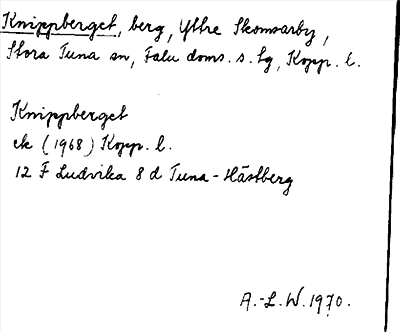 Knippberget, berg, Yttre Skomsarby,
Stora Tuna sn, Falu doms. s. lg, Kopp. l.
Knippberget
ek (1968) Kopp. l.
12 F Ludvika 8 d Tuna-Hästberg
A.-L. W. 1970.